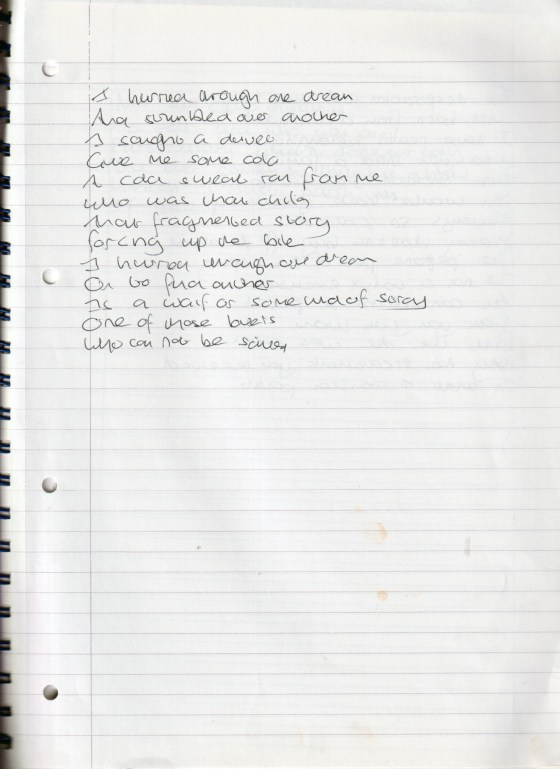 I hurried through one dream
And stumbled over another
I sought a duvet
Give me some cold
A cold sweat ran from me
who was that child
that fragmented story
forcing up the bile
I hurried through one dream
On to find another
Is a waif or some kind of stray
One of those
who can not be